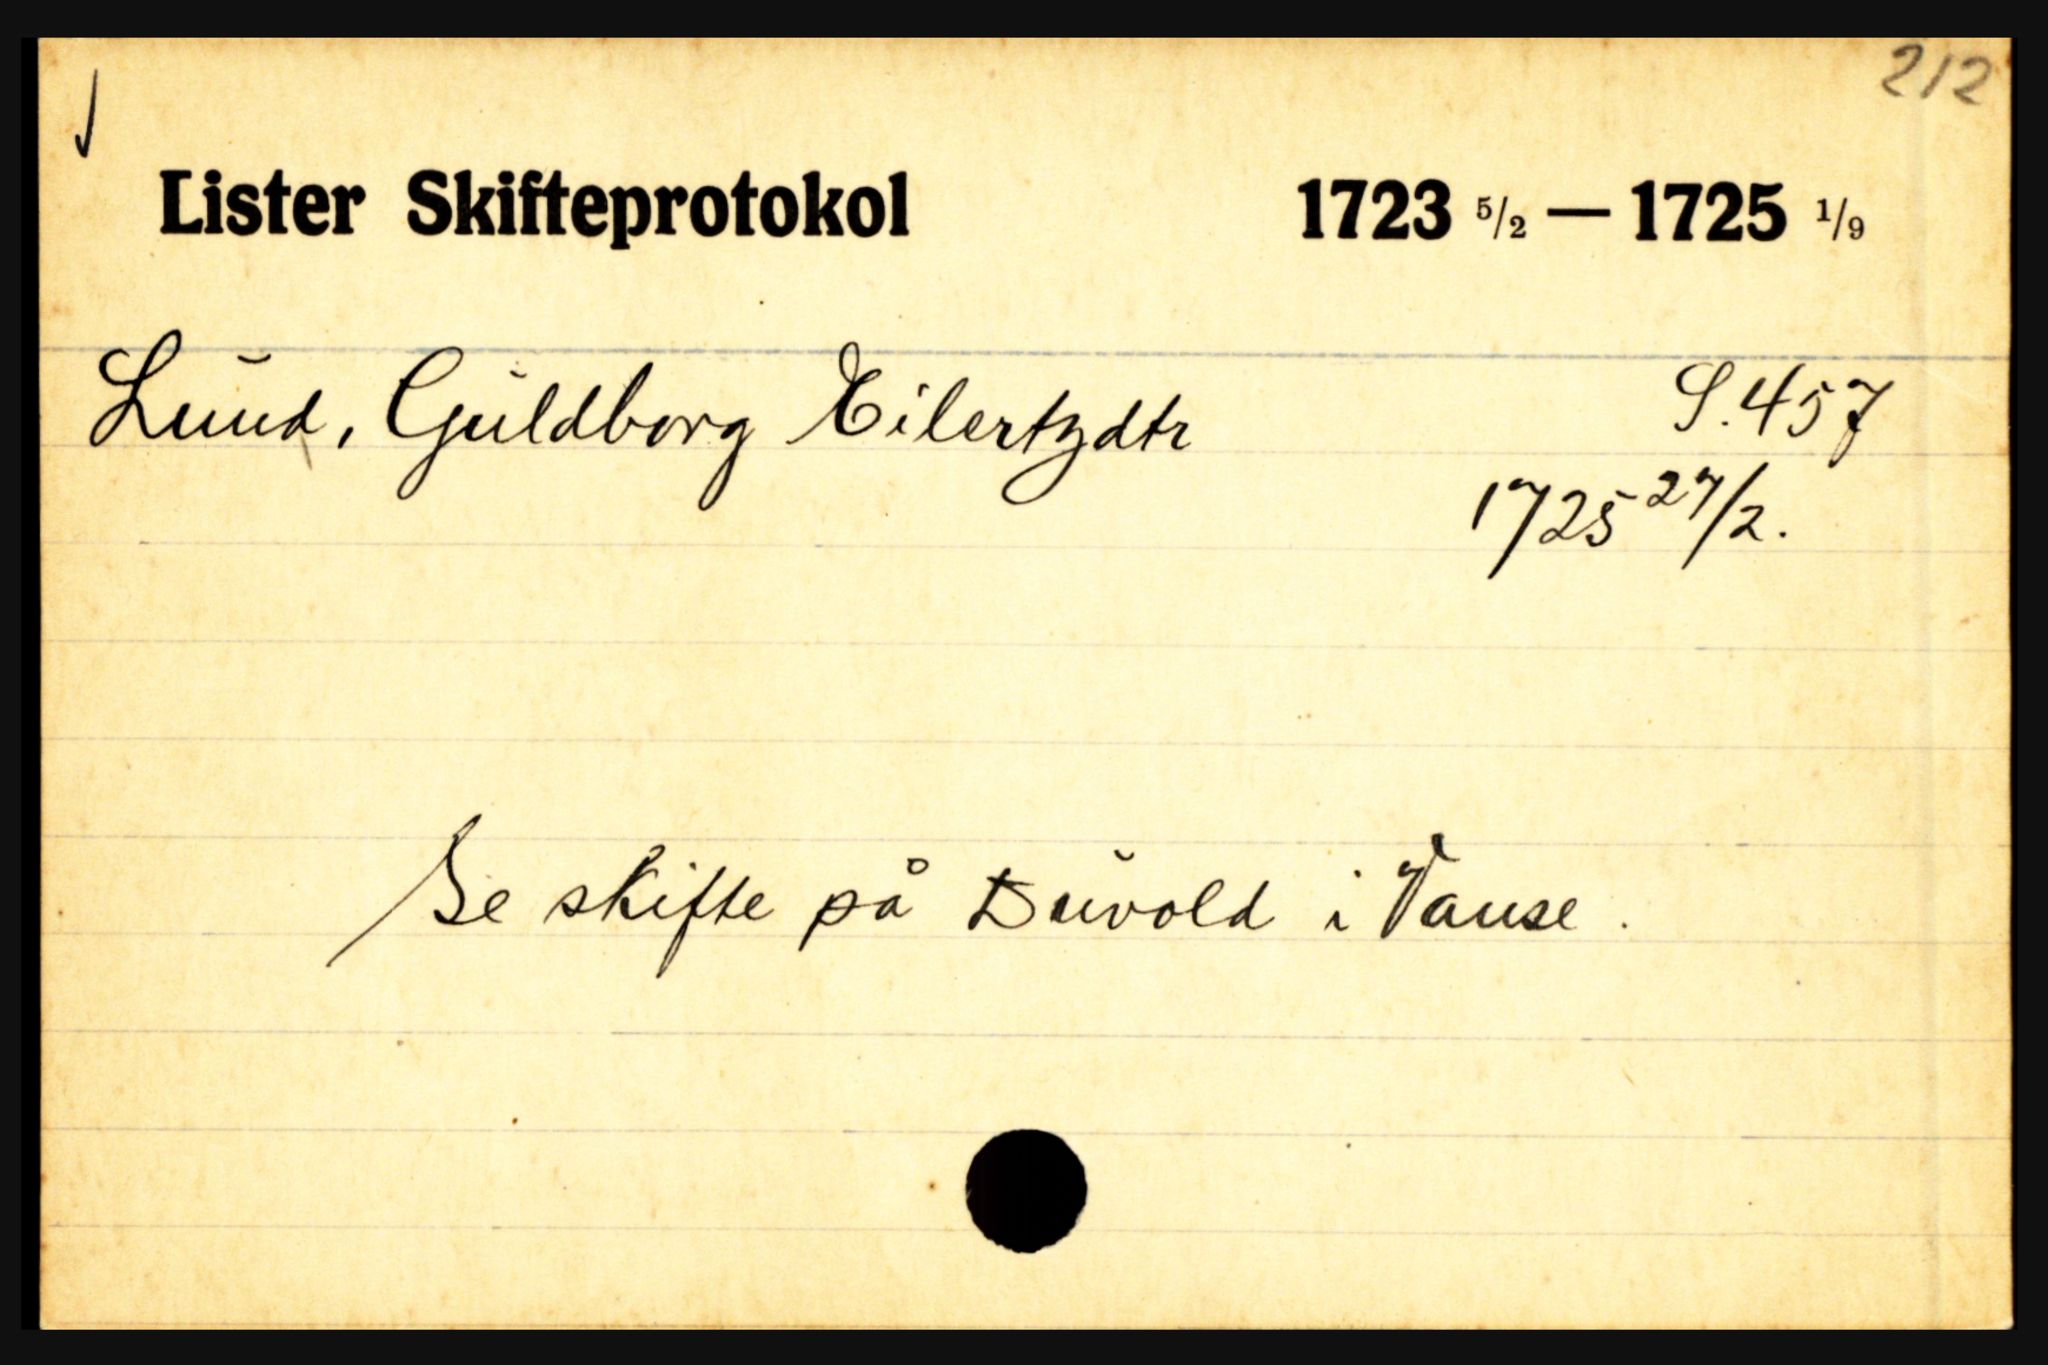 212
Lister Skifteprotokol 1723 5/2 — 1725 1/9
Lund, Guldborg Eilertzdtr S. 457
1725 27/2.
Se skifte på Duvold i Vanse.